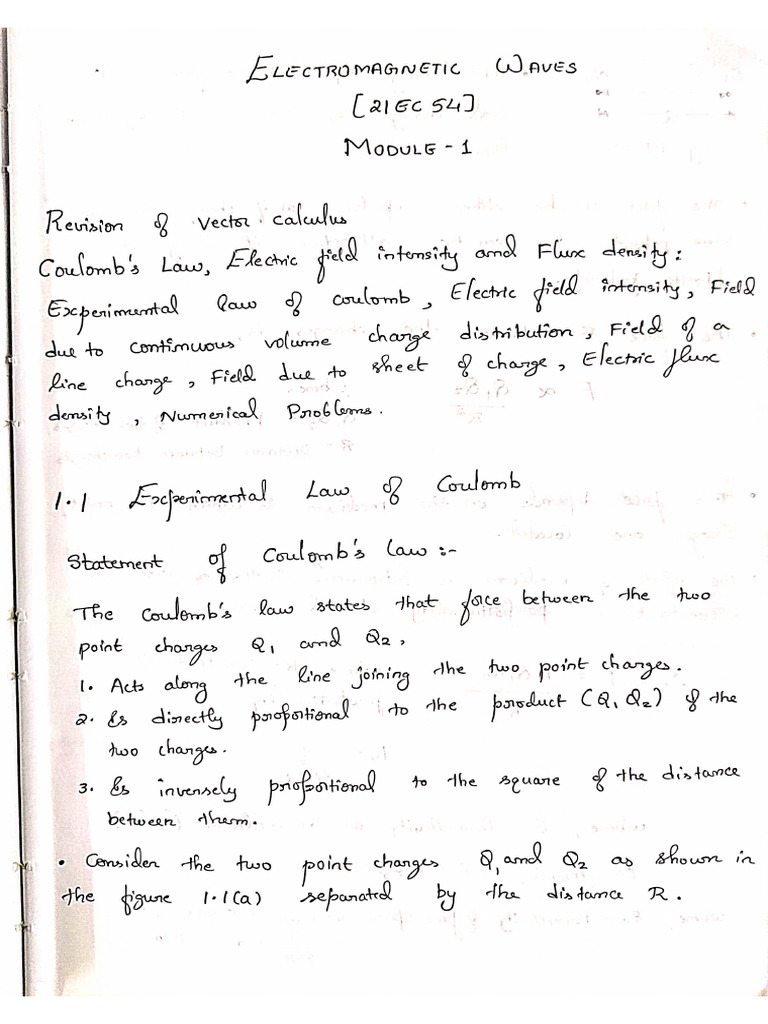 ELECTROMAGNETIC WAVES
[21EC54]
MODULE-1
Revision of vector calculus
Coulomb's Law, Electric field intensity and Flux density:
Experimental law of coulomb, Electric field intensity, Field
due to continuous volume charge distribution, Field of a
line charge, Field due to sheet of charge, Electric flux
density, Numerical Problems.
1.1 Experimental Law of Coulomb
Statement of Coulomb's law :-
The Coulomb's law states that force between the two
point charges Q1 and Q2,
1. Acts along the line joining the two point charges.
2. Is directly proportional to the product (Q1 Q2) of the
two charges.
3. Is inversely proportional to the square of the distance
between them.
• Consider the two point charges Q1 and Q2 as shown in
the figure 1.1(a) separated by the distance R.